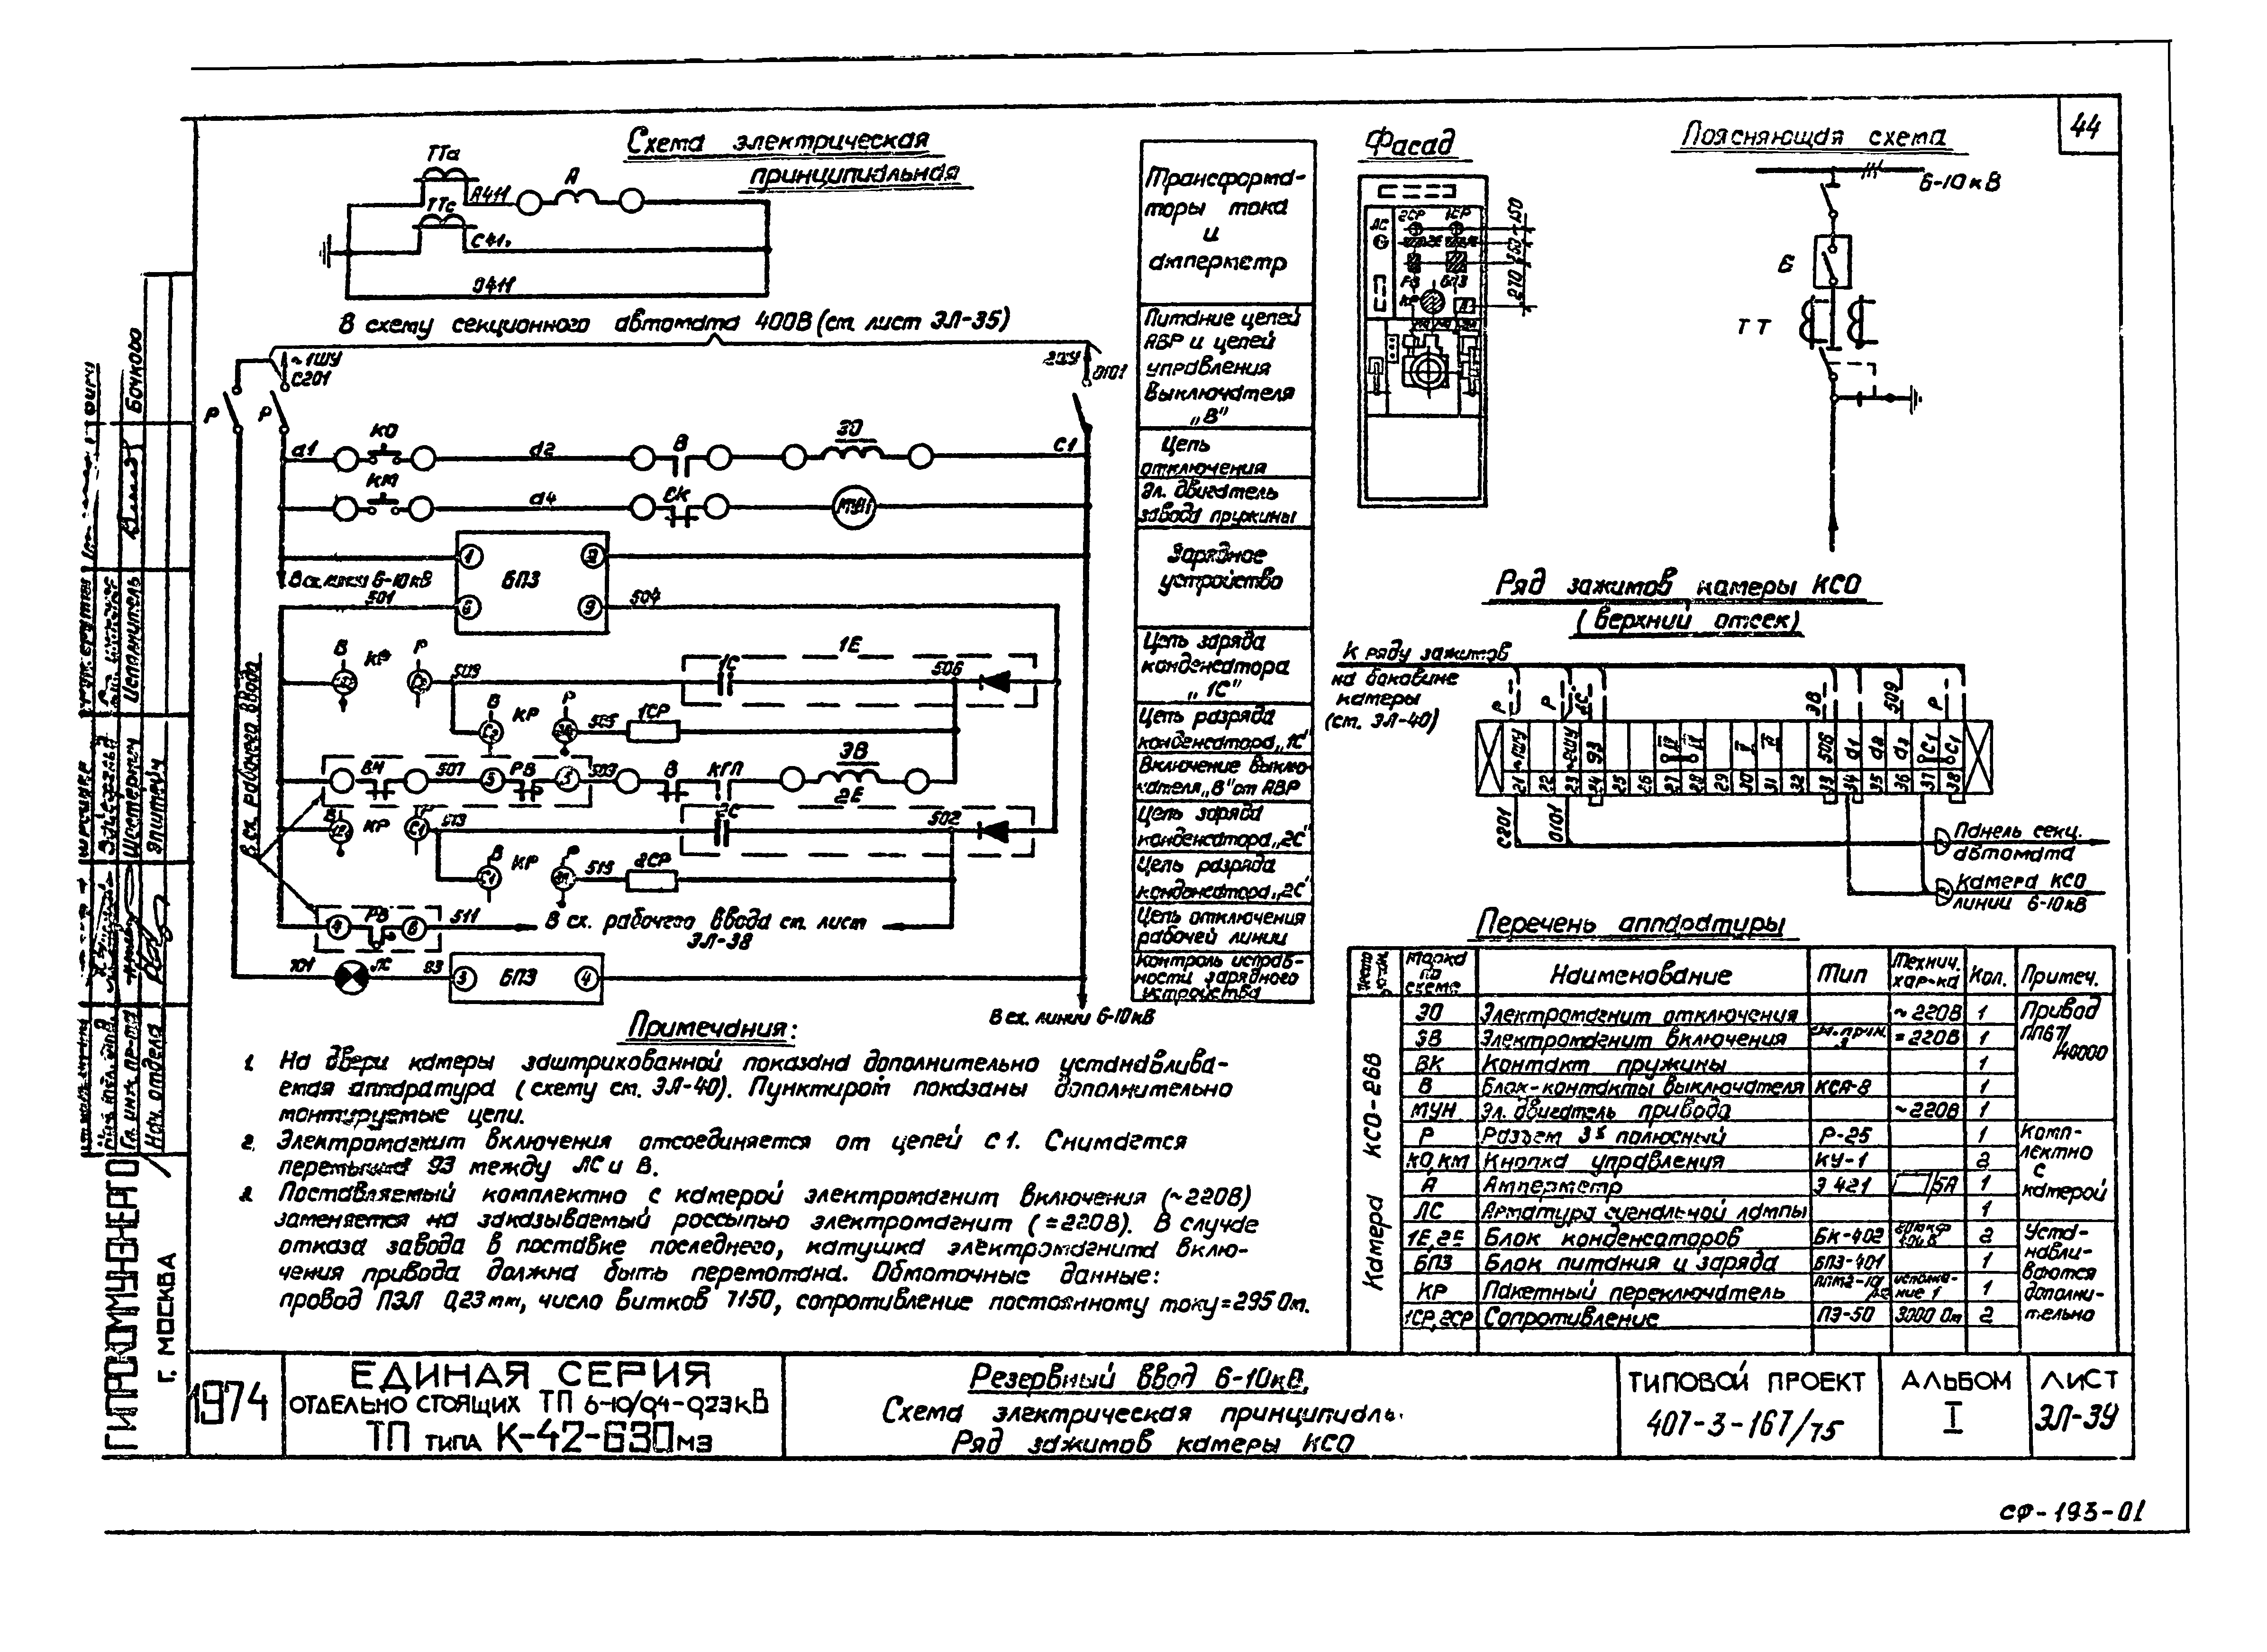 44
Схема электрическая
принципиальная
ТТа
А411
А
ТТс
С411
0411
В схему секционного автомата 400В (см. лист ЭЛ-35)
~1ШУ
С201
0101
Р
Р
а1
КО
а2
В
ЭО
С1
КМ
а4
МУН
1
2
БПЗ
6
9
В сх. линии 6-10кВ
501
504
В
КР
Р
509
1Е
1С
506
В
КР
Р
505
1СР
ВМ
507
5
РВ
3
503
В
КГП
ЭВ
2Е
В
КР
513
2С
502
В
КР
515
2СР
В сх. рабочего ввода
4
РВ
6
511
В сх. рабочего ввода см. лист
ЭЛ-38
701
ЛС
93
3
БПЗ
4
В сх. линии 6-10кВ
Трансформа-
торы тока
и
амперметр
Питание цепей
АВР и цепей
управления
выключателя
„В"
Цепь
отключения
Эл. двигатель
завода пружины
Зарядное
устройство
Цепь заряда
конденсатора
„1С"
Цепь разряда
конденсатора „1С"
Включение выклю-
чателя „В" от АВР
Цепь заряда
конденсатора „2С"
Цепь разряда
конденсатора „2С"
Цепь отключения
рабочей линии
Контроль исправ-
ности зарядного
устройства
Фасад
ЛС
2СР
1СР
БПЗ
КР
А
150
270
Поясняющая схема
6-10кВ
ТТ
Ряд зажимов камеры КСО
(верхний отсек)
К ряду зажимов
на боковине
камеры
(см. ЭЛ-40)
Р
Р
ЛС
ЭВ
509
Р
93
506
а1
а2
С1
С1
21
22
23
24
25
26
27
28
29
30
31
32
33
34
35
36
37
38
С201
0101
Панель секц.
автомата
Камера КСО
линии 6-10кВ
Примечания:
1. На двери камеры заштрихованной показана дополнительно устанавлива-
емая аппаратура (схему см. ЭЛ-40). Пунктиром показаны дополнительно
монтируемые цепи.
2. Электромагнит включения отсоединяется от цепей С1. Снимается
перемычка 93 между ЛС и В.
Поставляемый комплектно с камерой электромагнит включения (~220В)
заменяется на заказываемый россыпью электромагнит (=220В). В случае
отказа завода в поставке последнего, катушка электромагнита вклю-
чения привода должна быть перемотана. Обмоточные данные:
провод ПЭЛ 0,23mm, число витков 7150, сопротивление постоянному току=295 Ом.
Перечень аппаратуры
Марка по схеме Наименование Тип Технич. хар-ка Кол. Примеч.
Камера КСО-26В
ЭО Электромагнит отключения ~220В 1 Привод
ЭВ Электромагнит включения см. прим. =220В 1 ПП67/
ВК Контакт пружины 1
В Блок-контакты выключателя КСА-8 1
МУН Эл. двигатель привода ~220В 1
Р Разъем 3х полюсный Р-25 1 Комп-
КО,КМ Кнопка управления КУ-1 2 лектно
А Амперметр Э 421 /5А 1 с
ЛС Арматура сигнальной лампы 1 камерой
1Е,2Е Блок конденсаторов БК-402 2 Уста-
БПЗ Блок питания и заряда БПЗ-401 1 навли-
КР Пакетный переключатель исполне-ние 1 1 ваются дополни-
1СР,2СР Сопротивление ПЭ-50 3000 Ом 2 тельно
Бочкова
Исполнитель
Шестеркин
Эпштейн
Гл. инж. пр-та
Нач. отдела
ГИПРОКОММУНЭНЕРГО
Г. МОСКВА
1974
ЕДИНАЯ СЕРИЯ
ОТДЕЛЬНО СТОЯЩИХ ТП 6-10/0,4-0,23кВ
ТП типа К-42-630 м3
Резервный ввод 6-10кВ.
Схема электрическая принципиаль.
Ряд зажимов камеры КСО
ТИПОВОЙ ПРОЕКТ
407-3-167/75
АЛЬБОМ
I
ЛИСТ
ЭЛ-39
СФ-193-01